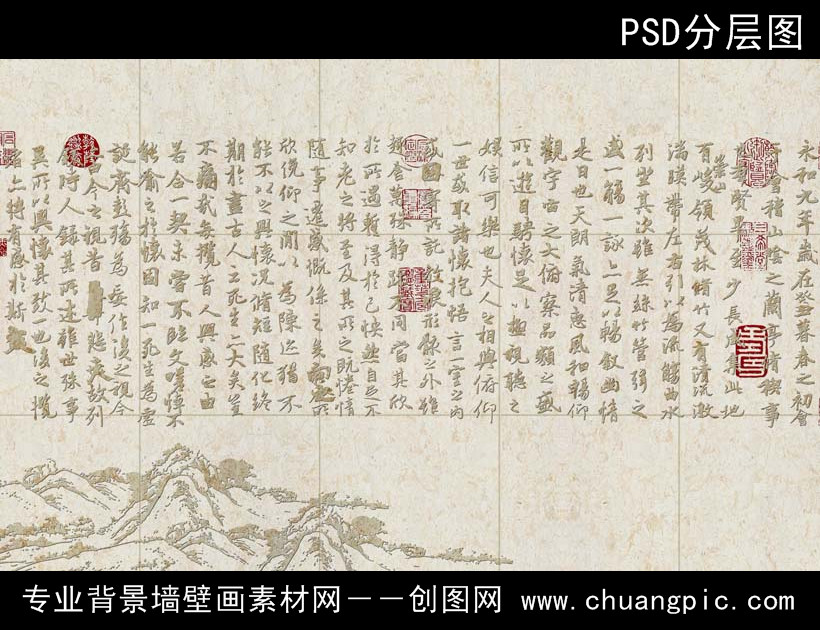 PSD分层图
永和九年歲在癸丑暮春之初會
會稽山陰之蘭亭脩稧事
也群賢畢至少長咸集此地
有崇山
峻領茂林脩竹又有清流激
湍暎帶左右引以為流觴曲水
列坐其次雖無絲竹管弦之
盛一觴一詠亦足以暢敘幽情
是日也天朗氣清惠風和暢仰
觀宇宙之大俯察品類之盛
所以遊目騁懷足以極視聽之
娛信可樂也夫人之相與俯仰
一世或取諸懷抱悟言一室之內
或因寄所託放浪形骸之外雖
趣舍萬殊靜躁不同當其欣
於所遇蹔得於己快然自足不
知老之將至及其所之既惓情
隨事遷感慨係之矣向之所
欣俛仰之閒以為陳迹猶不
能不以之興懷況脩短隨化終
期於盡古人云死生亦大矣豈
不痛哉每攬昔人興感之由
若合一契未嘗不臨文嗟悼不
能喻之於懷固知一死生為虛
誕齊彭殤為妄作後之視今
今之視昔悲夫故列
敘時人錄其所述雖世殊事
異所以興懷其致一也後之攬
者亦將有感於斯
专业背景墙壁画素材网——创图网 www.chuangpic.com